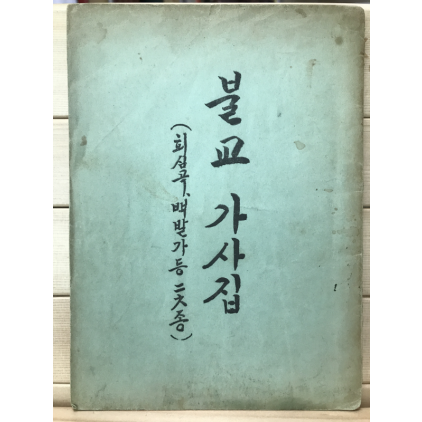 불교 가사집
(회심곡, 백발가 등 二六종)